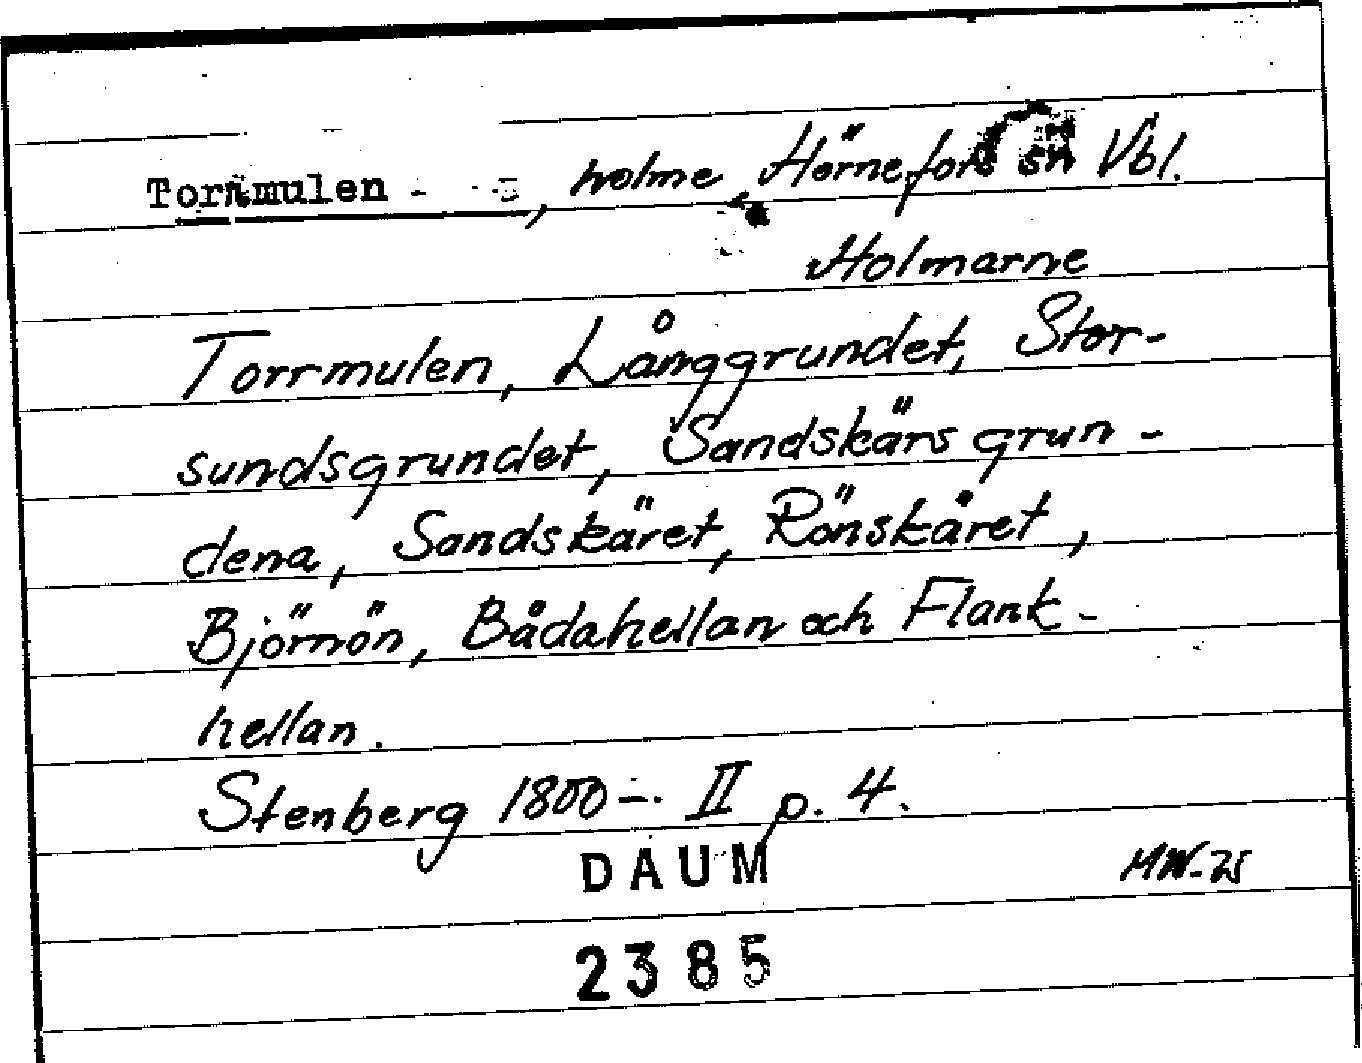 Tornmulen, holme Hörnefors sn Vbl.
Holmarne
Torrmulen, Långgrundet, Stor-
sundsgrundet, Sandskärsgrun-
dena, Sandskäret, Rönskäret,
Björnön, Bådahellan och Flank-
hellan.
Stenberg 1800-. II p. 4.
DAUM
MW-75
2385